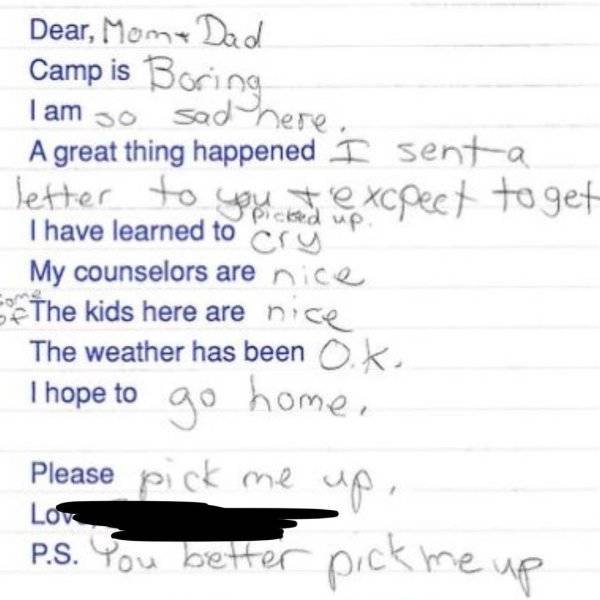 Dear, Mom + Dad
Camp is Boring
I am so sad here.
A great thing happened I sent a
letter to you + excpect to get
picked up.
I have learned to cry
My counselors are nice
some of The kids here are nice
The weather has been O.k.
I hope to go home.
Please pick me up.
Lov
P.S. You better pick me up